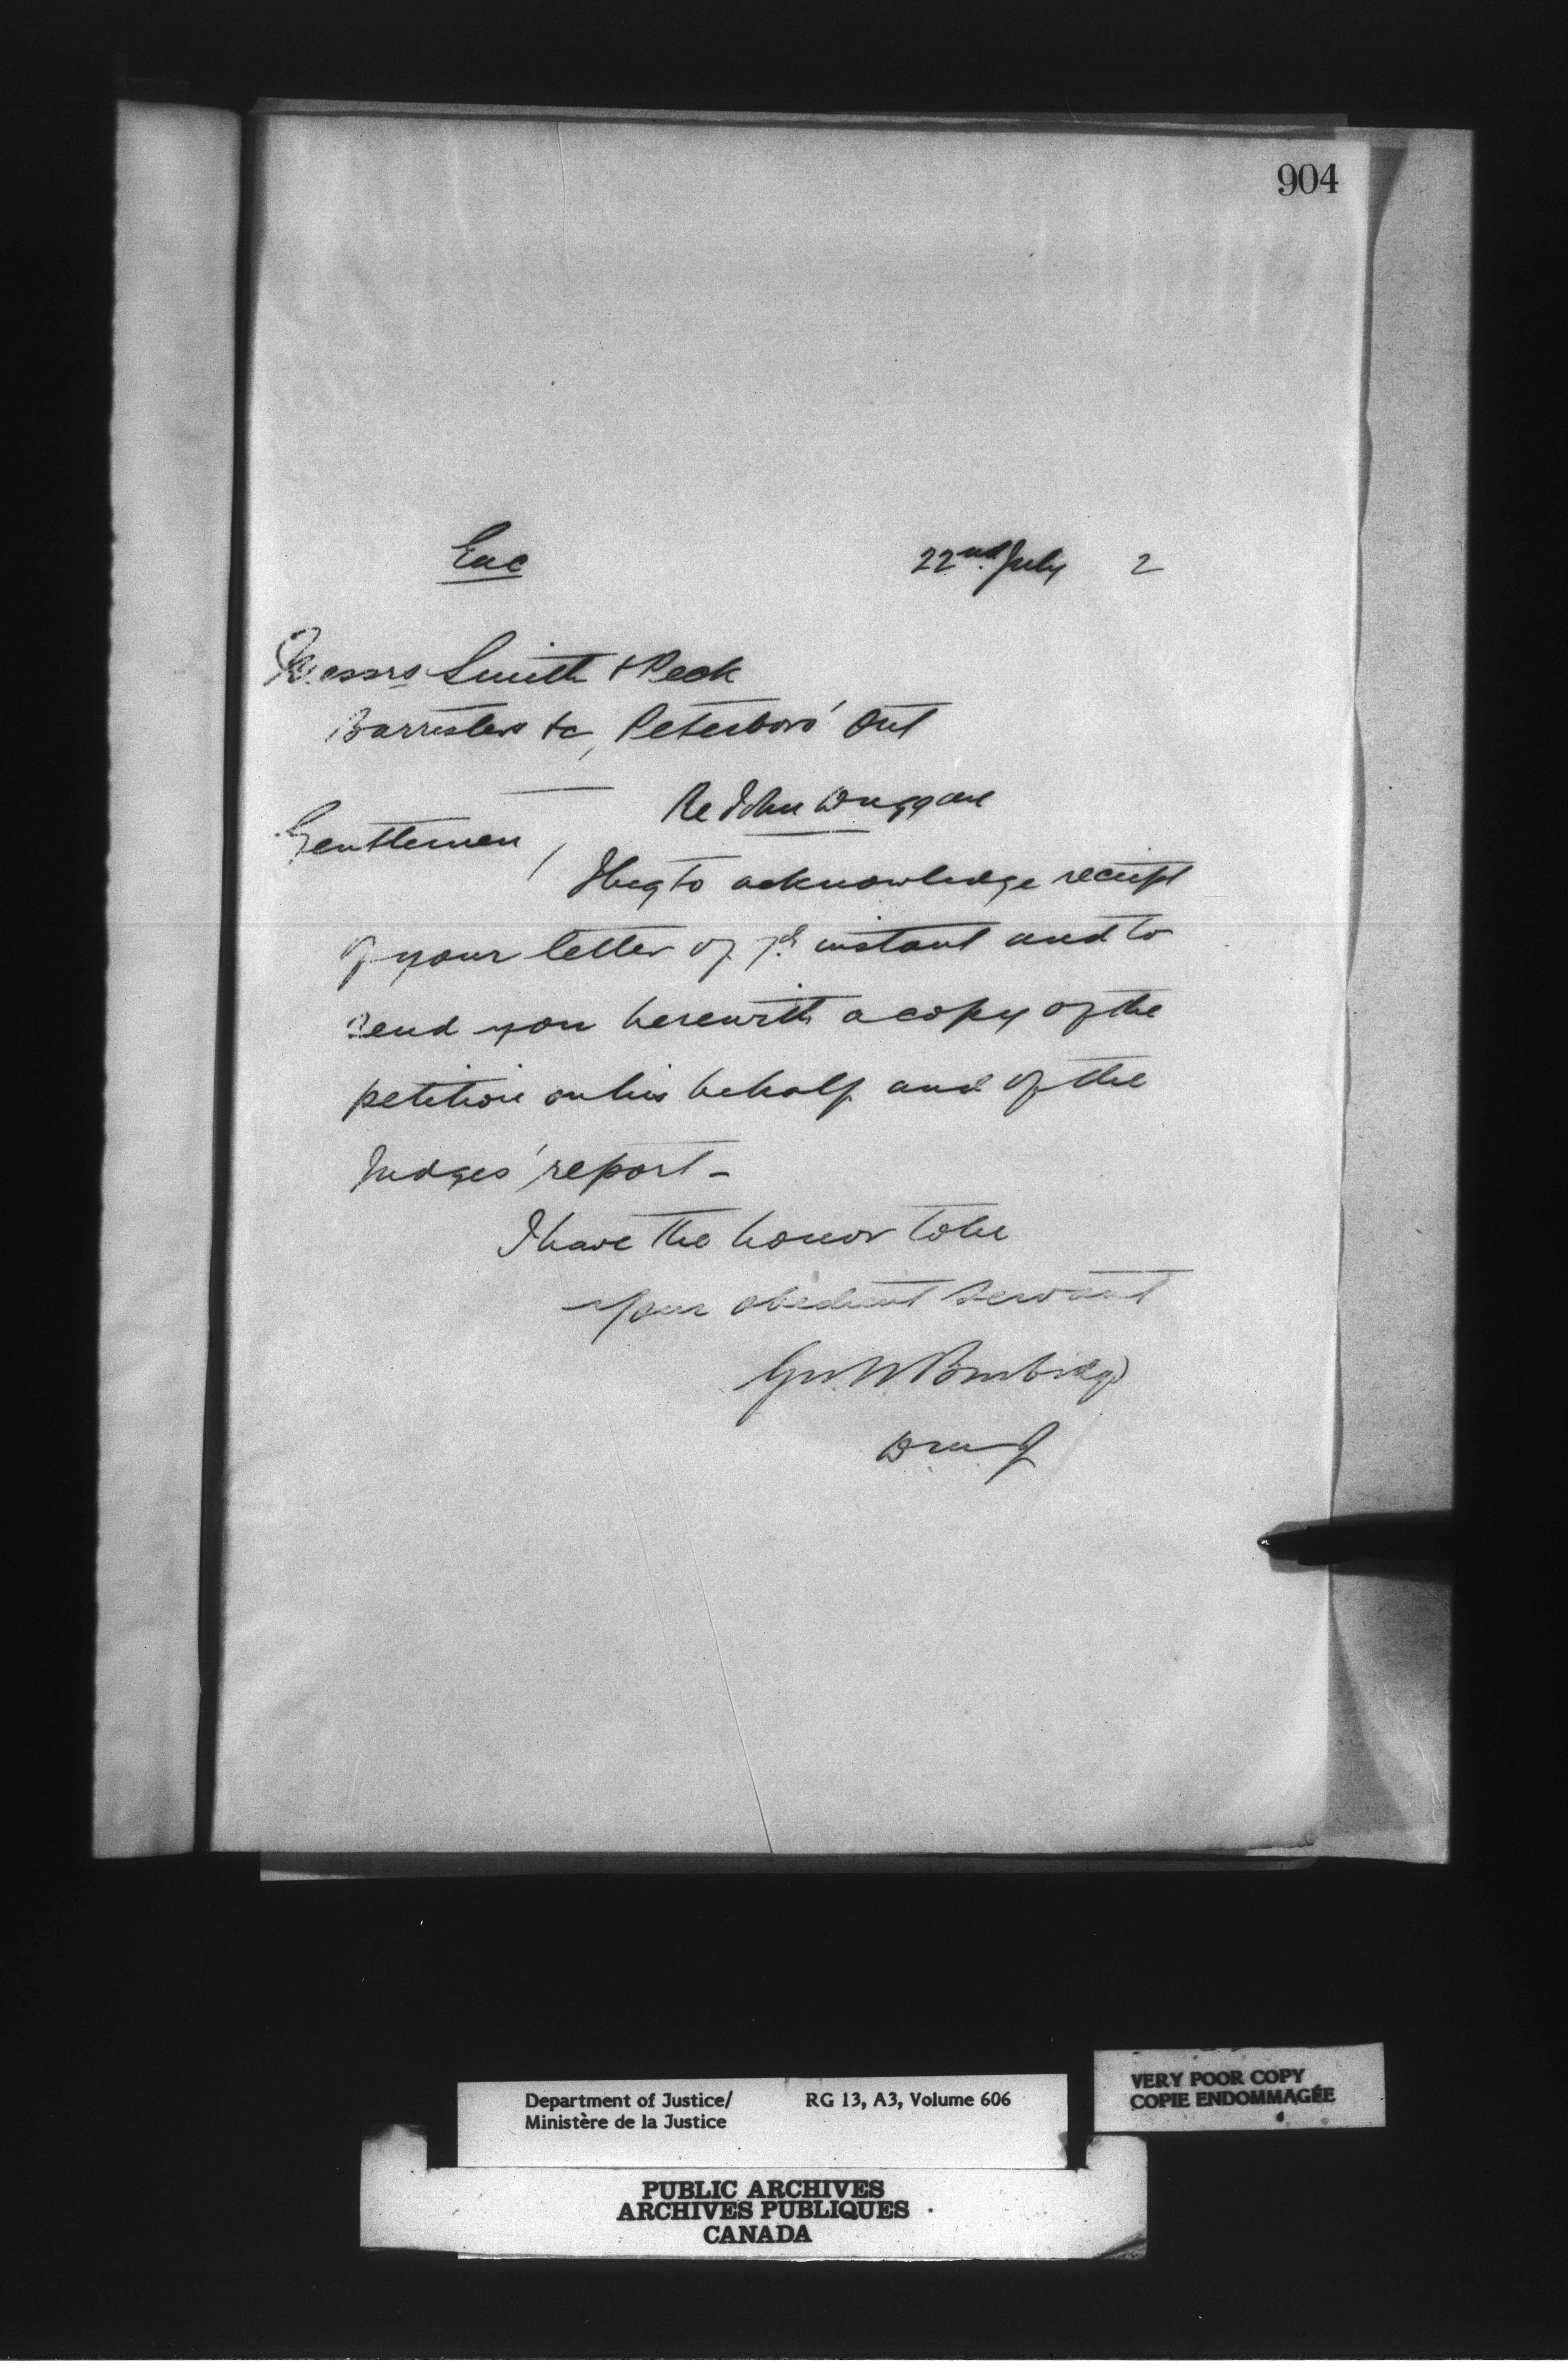 904
Enc
22nd July 2
Messrs Smith & Peck
Barristers &c, Peterboro' Ont
Re John Duggan
Gentlemen,
I beg to acknowledge receipt
of your letter of instant and to
send you herewith a copy of the
petition on his behalf and of the
Judges' report -
I have the honor to be
Your obedient servant
Geo W Burbidge
D m J
Department of Justice/ RG 13, A3, Volume 606
Ministère de la Justice
VERY POOR COPY
COPIE ENDOMMAGÉE
PUBLIC ARCHIVES
ARCHIVES PUBLIQUES
CANADA